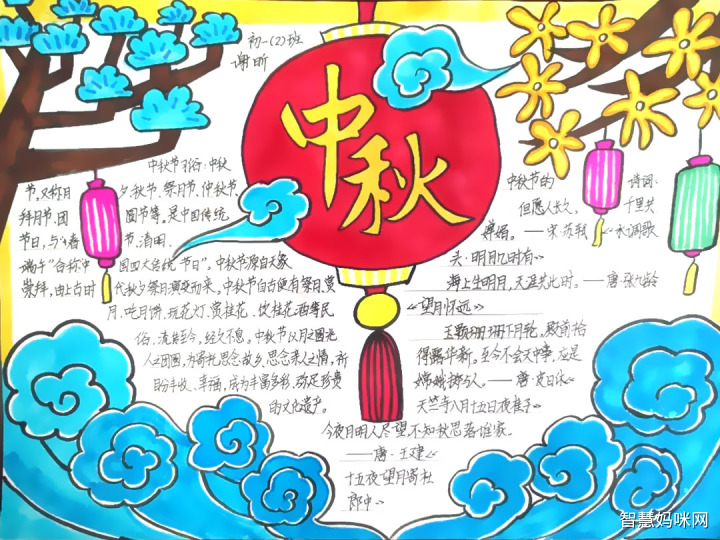 初一(2)班
谢昕
中秋
中秋节习俗:中秋
节,又称月夕、秋节、祭月节、仲秋节、
拜月节、团圆节等。是中国传统
节日,与春节、清明、
端午"合称中国四大传统节日"。中秋节源自天象
崇拜,由上古时代秋夕祭月演变而来。中秋节自古便有祭月、赏
月、吃月饼、玩花灯、赏桂花、饮桂花酒等民
俗,流传至今,经久不息。中秋节以月之圆兆
人之团圆,为寄托思念故乡、思念亲人之情,祈
盼丰收、幸福,成为丰富多彩,弥足珍贵
的文化遗产。
中秋节的诗词:
但愿人长久,千里共
婵娟。——宋·苏轼《水调歌
头·明月几时有》
海上生明月,天涯共此时。——唐·张九龄
《望月怀远》
玉颗珊珊下月轮,殿前拾
得露华新。至今不会天中事,应是
嫦娥掷与人。——唐·皮日休《
天竺寺八月十五日夜桂子》
今夜月明人尽望,不知秋思落谁家。
——唐·王建《
十五夜望月寄杜
郎中》
智慧妈咪网